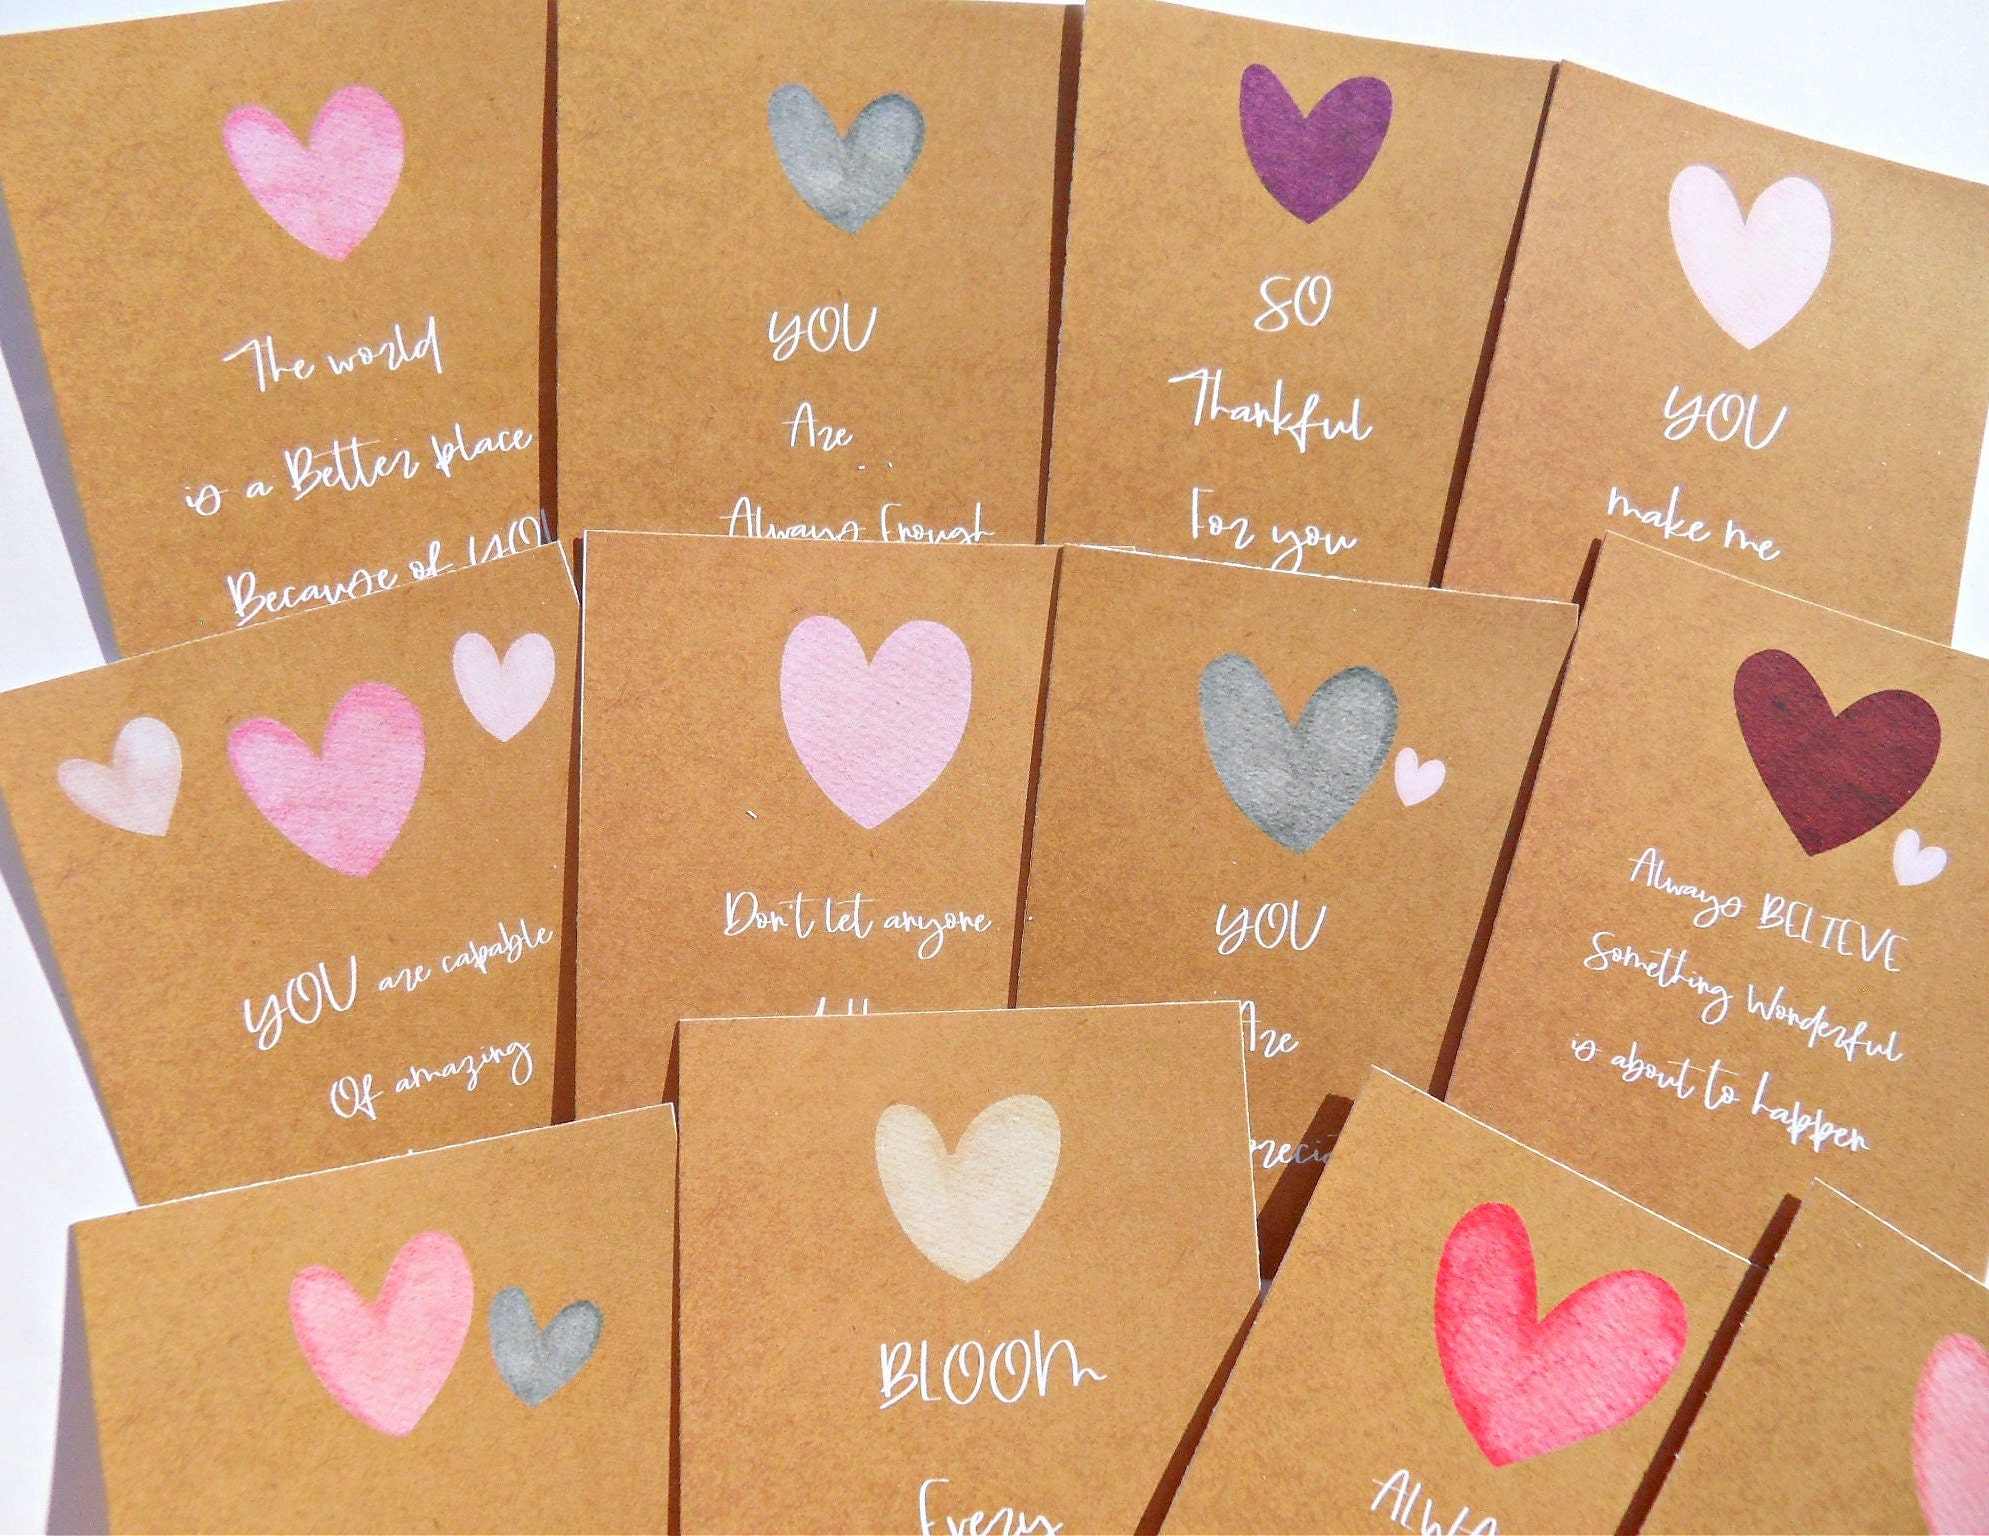 The world
is a Better place
Because of YOU
YOU
Are
Always Enough
SO
Thankful
For you
YOU
make me
YOU are capable
Of amazing
Don't let anyone
YOU
Are
Always BELIEVE
Something Wonderful
is about to happen
BLOOM
Every
ALWA